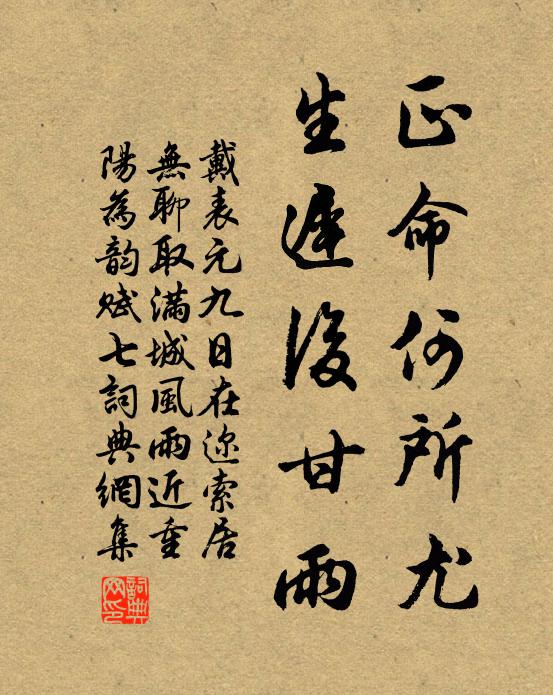 正命何所尤
生遲後甘雨
戴表元九日在迩索居
無聊取滿城風雨近重
陽為韵賦七詞典網集
詞典網印